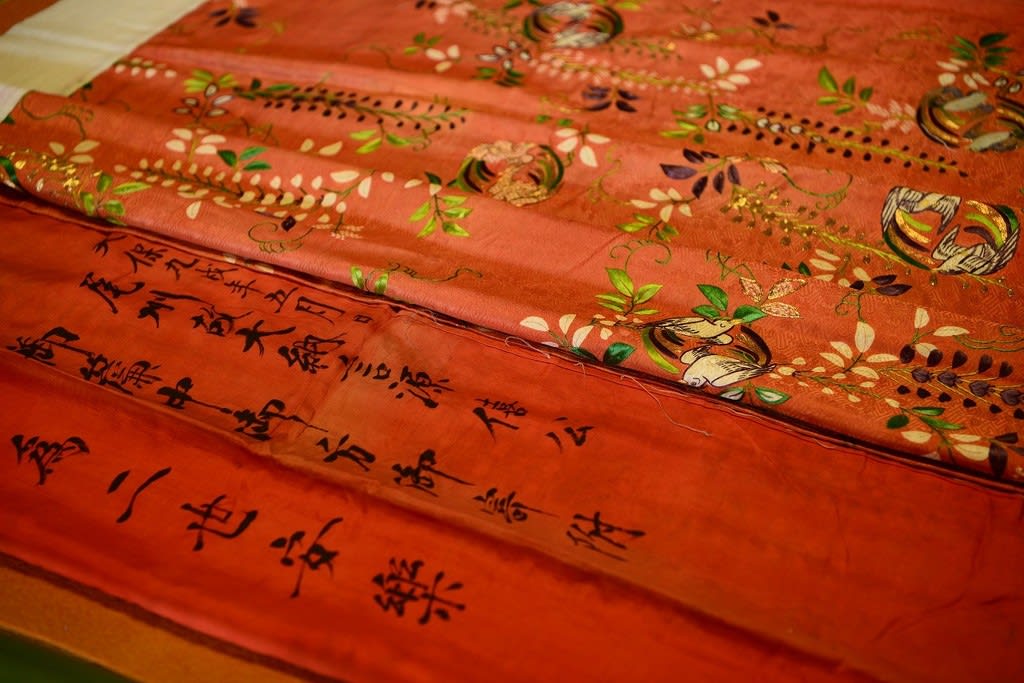 天保九戌年五月日
尾州故大納言源僖公
御簾中御方御寄附
為二世安樂